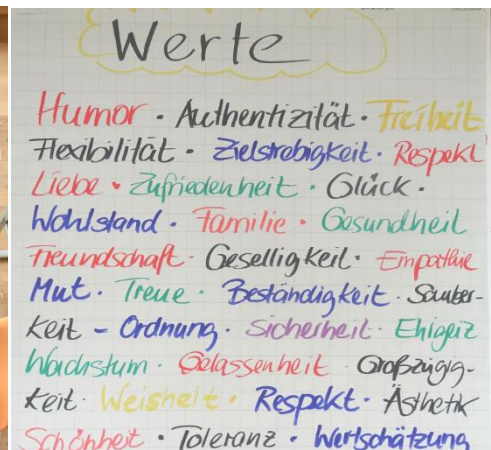 Werte
Humor · Authentizität · Freiheit
Flexibilität · Zielstrebigkeit · Respekt
Liebe · Zufriedenheit · Glück ·
Wohlstand · Familie · Gesundheit
Freundschaft · Geselligkeit · Empathie
Mut · Treue · Beständigkeit · Sauber-
keit - Ordnung · Sicherheit · Ehrgeiz
Wachstum · Gelassenheit · Großzügig-
keit · Weisheit · Respekt · Ästhetik
Schönheit · Toleranz · Wertschätzung